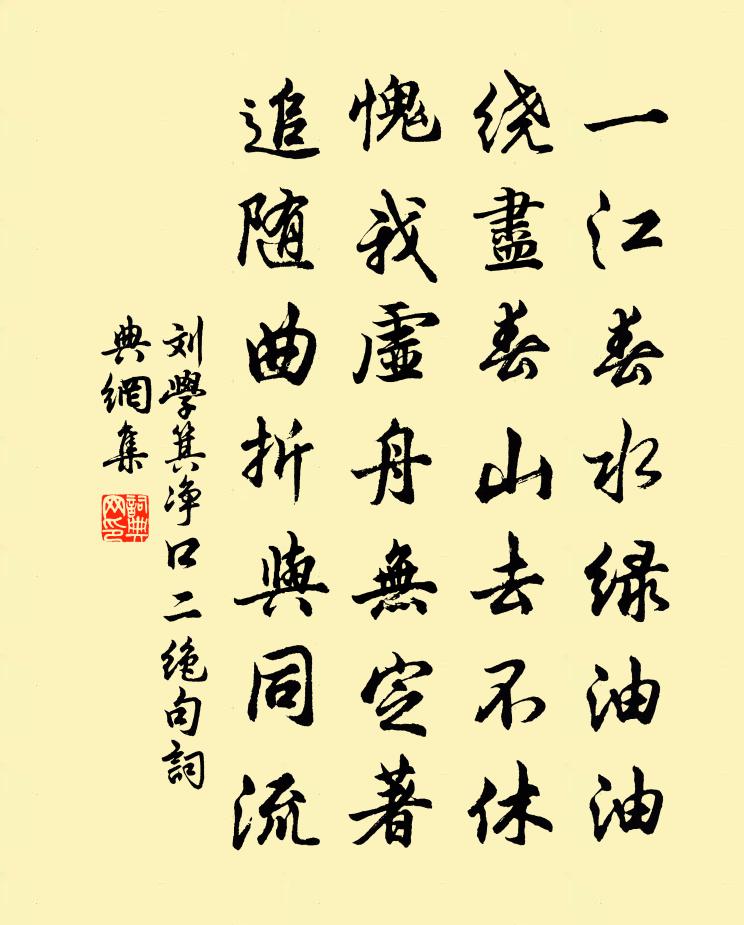 一江春水绿油油
绕盡春山去不休
愧我虚舟無定著
追随曲折與同流
刘學箕净口二绝句詞
典網集
詞典網印